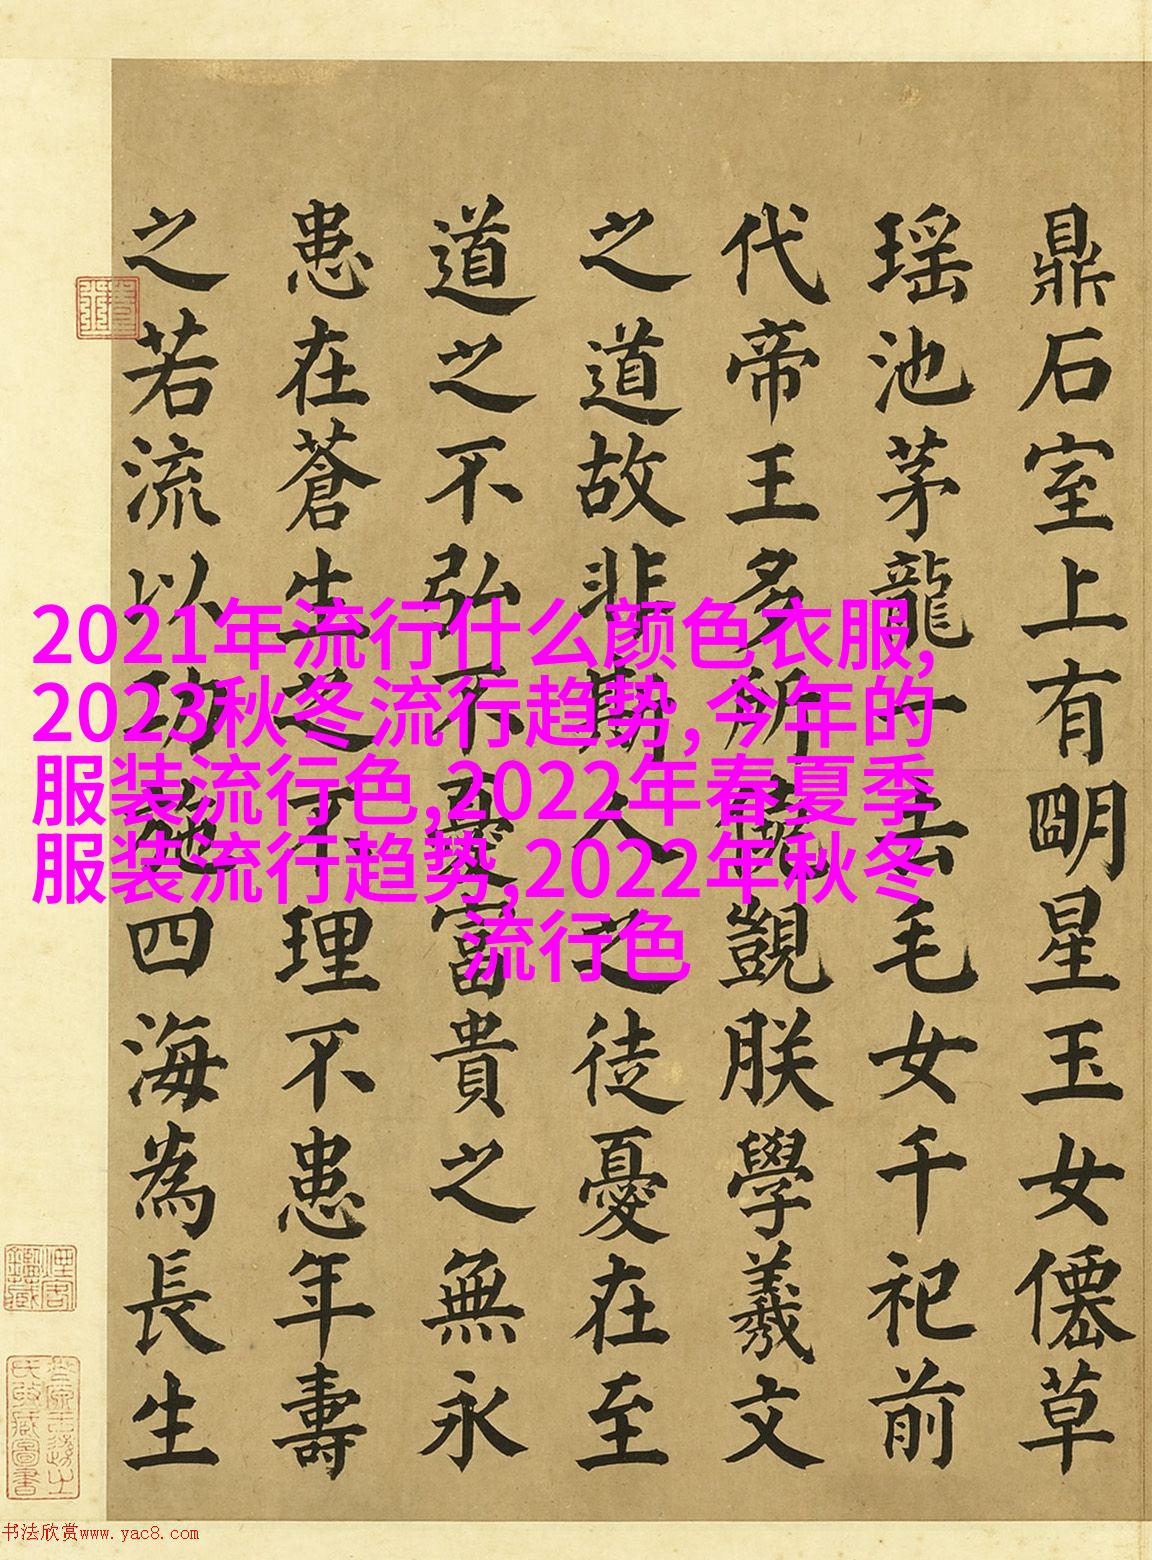 鼎石室上有朙星玉女僊草
瑶池茅龍一去毛女千祀前
代帝王多所覬朕學羲文
之道故非斯人之徒憂在至
道之不弘不憂富貴之無永
患在蒼生之不理不患年壽
之若流以功施四海為長生
2021年流行什么颜色衣服,
2023秋冬流行趋势,今年的
服装流行色,2022年春夏季
服装流行趋势,2022年秋冬
流行色
书法欣赏www.yac8.com